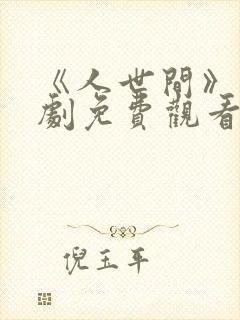 《人世間》
劇免費觀看
倪玉平